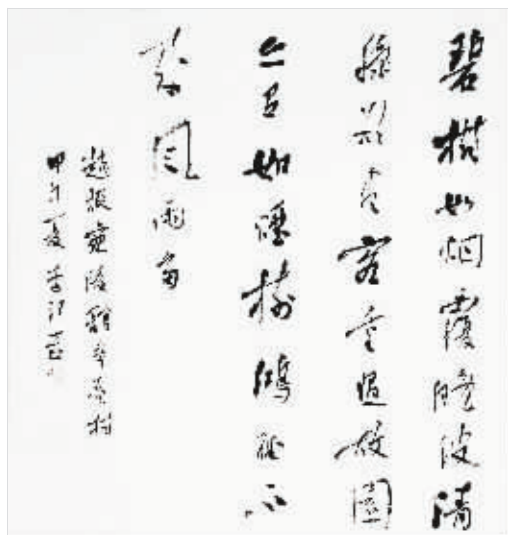 碧樹如烟覆晚波清
秋欲尽客重過故園
亦有如煙樹鴻雁不
來風雨多
趙嘏宛陵館冬青樹
甲午夏